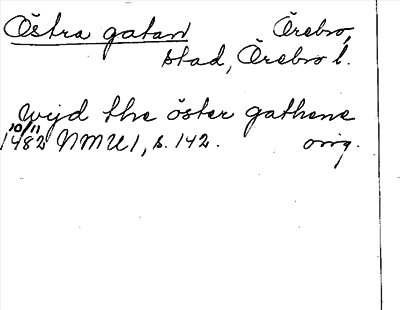 Östra gatan Örebro,
stad, Örebro l.
Wijd the öster gathene
10/11
1482 NMU 1, s. 142. orig.